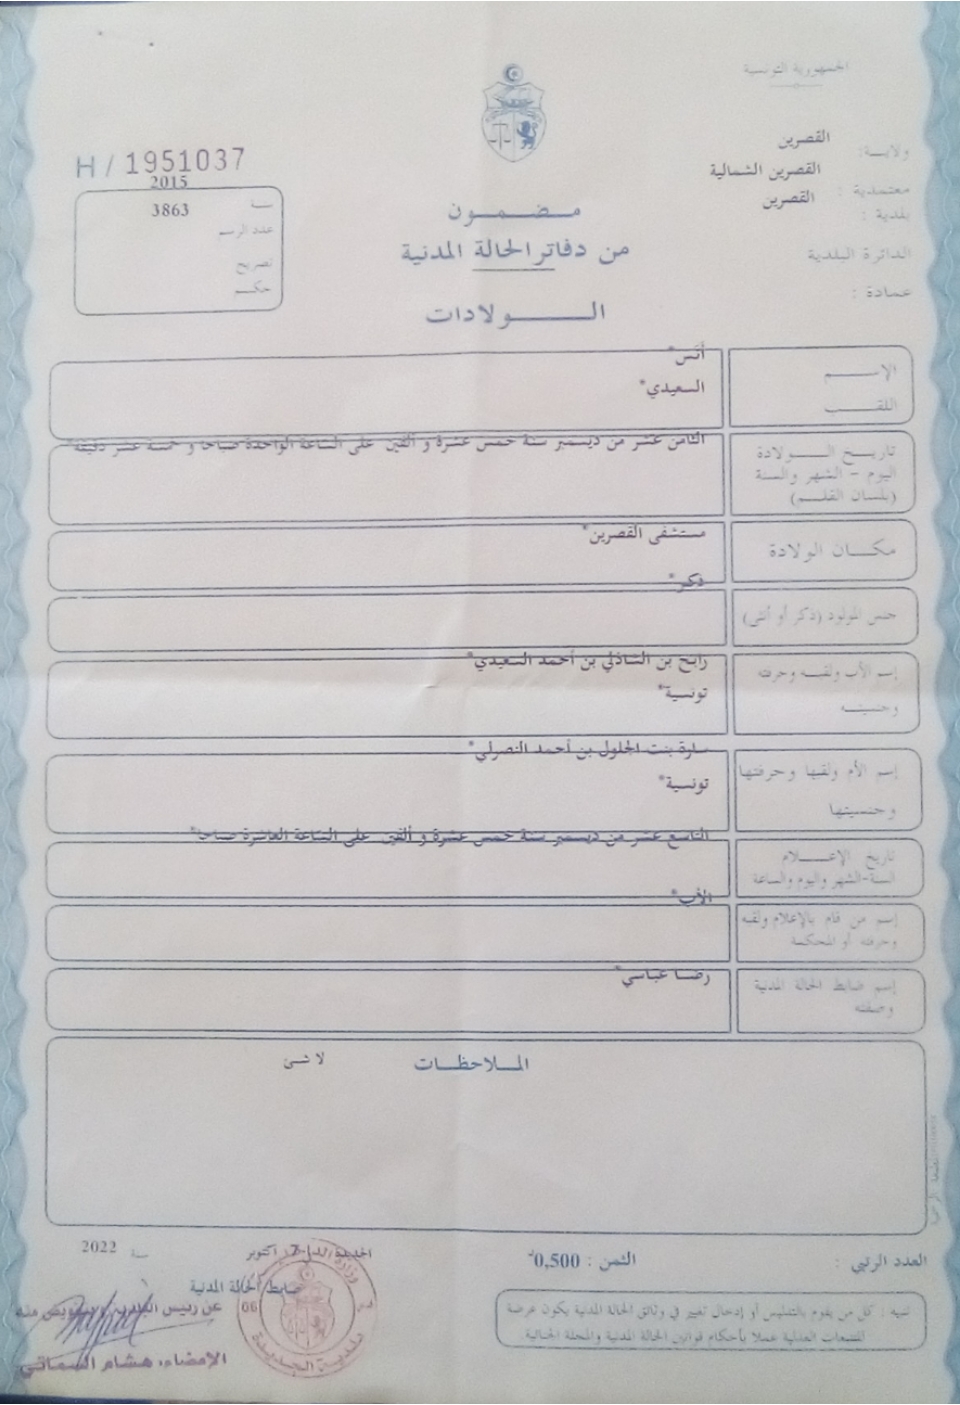 الجمهورية التونسية
ولايـــة: القصرين
معتمدية : القصرين الشمالية
بلدية : القصرين
الدائرة البلدية
عمادة :
H / 1951037
سنة 2015
عدد الرسم 3863
تصريح
حكم
مضمون
من دفاتر الحالة المدنية
الولادات
الإسم أنس*
اللقب السعيدي*
تاريخ الولادة الثامن عشر من ديسمبر سنة خمس عشرة و ألفين على الساعة الواحدة صباحا و خمسة عشر دقيقة*
اليوم - الشهر والسنة
(بلسان القلم)
مكان الولادة مستشفى القصرين*
جنس المولود (ذكر أو أنثى) ذكر*
إسم الأب ولقبه وحرفته رابح بن الشاذلي بن أحمد السعيدي*
وجنسيته تونسية*
إسم الأم ولقبها وحرفتها سارة بنت الجلول بن أحمد النصرلي*
وجنسيتها تونسية*
تاريخ الإعلام التاسع عشر من ديسمبر سنة خمس عشرة و ألفين على الساعة العاشرة صباحا*
السنة-الشهر واليوم والساعة
إسم من قام بالإعلام ولقبه الأب*
وحرفته أو المحكمة
إسم ضابط الحالة المدنية رضا عباسي*
وصفته
الملاحظات لا شئ
العدد الرتبي :
الثمن : 0,500د
أكتوبر
سنة 2022
ضابط الحالة المدنية
عن رئيس البلدية وبتفويض منه
الإمضاء، هشام السماتي
تنبيه : كل من يقوم بالتدليس أو إدخال تغيير في وثائق الحالة المدنية يكون عرضة
للتتبعات العدلية عملا بأحكام قوانين الحالة المدنية والمجلة الجنائية